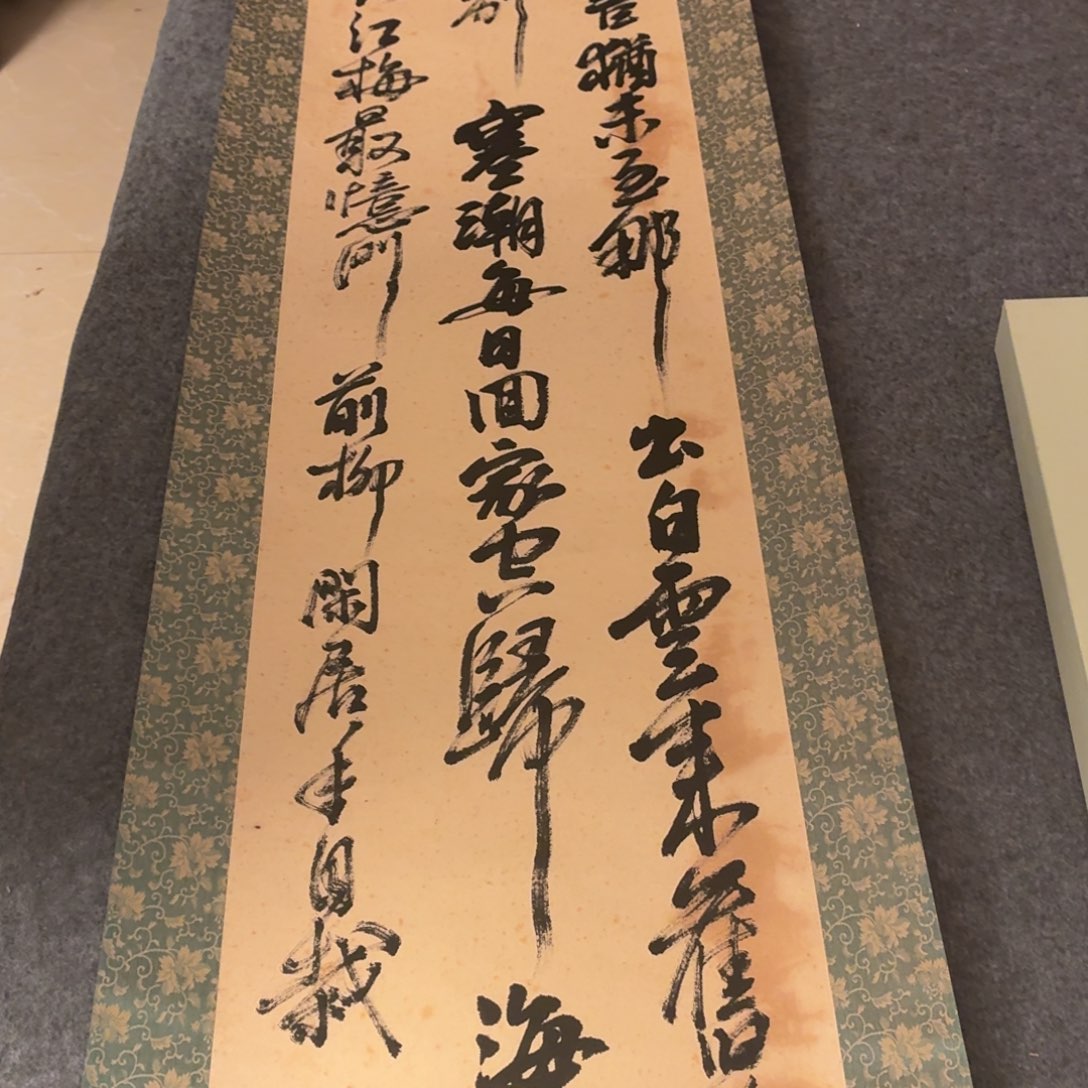 書猶未至那出白雲来舊
別寒潮每日囬家空歸海
江梅最憶門前柳閑居手自栽